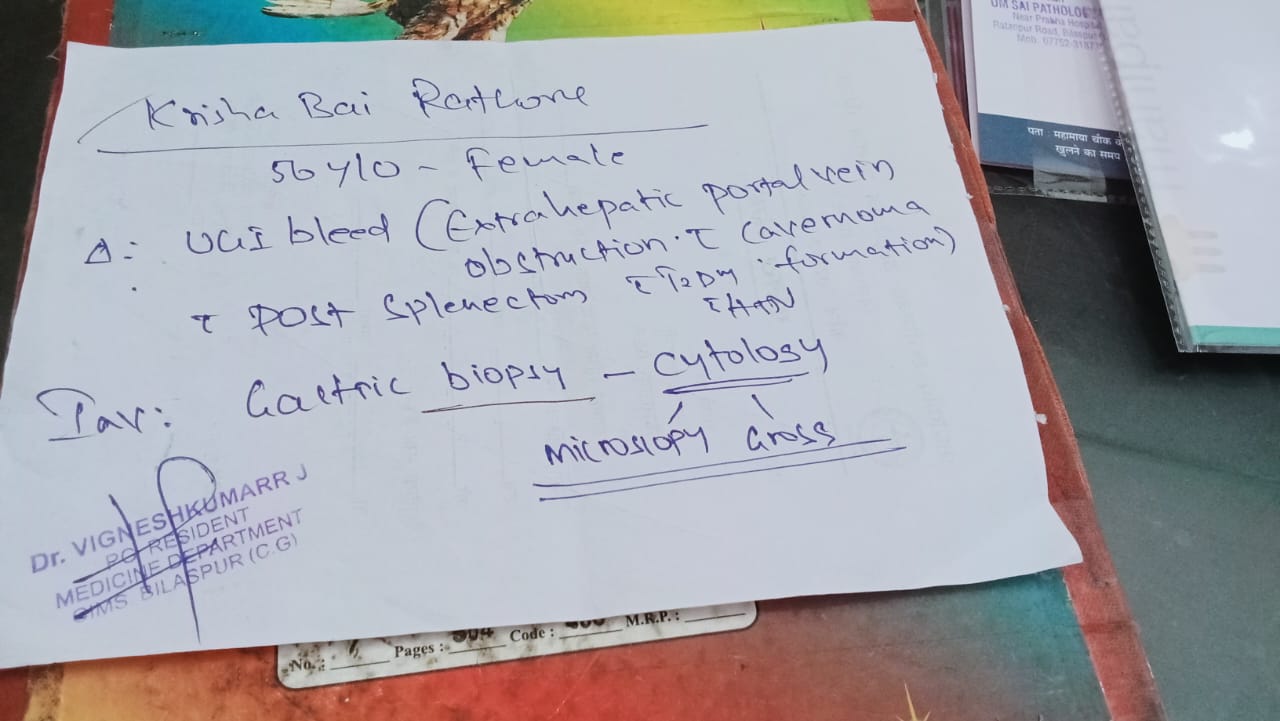 Krisha Bai Rathore
56 y/o - Female
Δ: UGI bleed (Extrahepatic portal vein
obstruction. c̄ cavernoma
formation)
c̄ Post Splenectom c̄ T2DM
c̄ HTN
Inv: Gastric biopsy - Cytology
microscopy Gross
Dr. VIGNESHKUMARR J
PG RESIDENT
MEDICINE DEPARTMENT
CIMS BILASPUR (C.G)
No.: Pages: 304 Code: M.R.P.:
OM SAI PATHOLO
Near Prabha Hospi
Ratanpur Road, Bilaspur
Mob. 07752-3187
पता : महामाया चौक
खुलने का समय